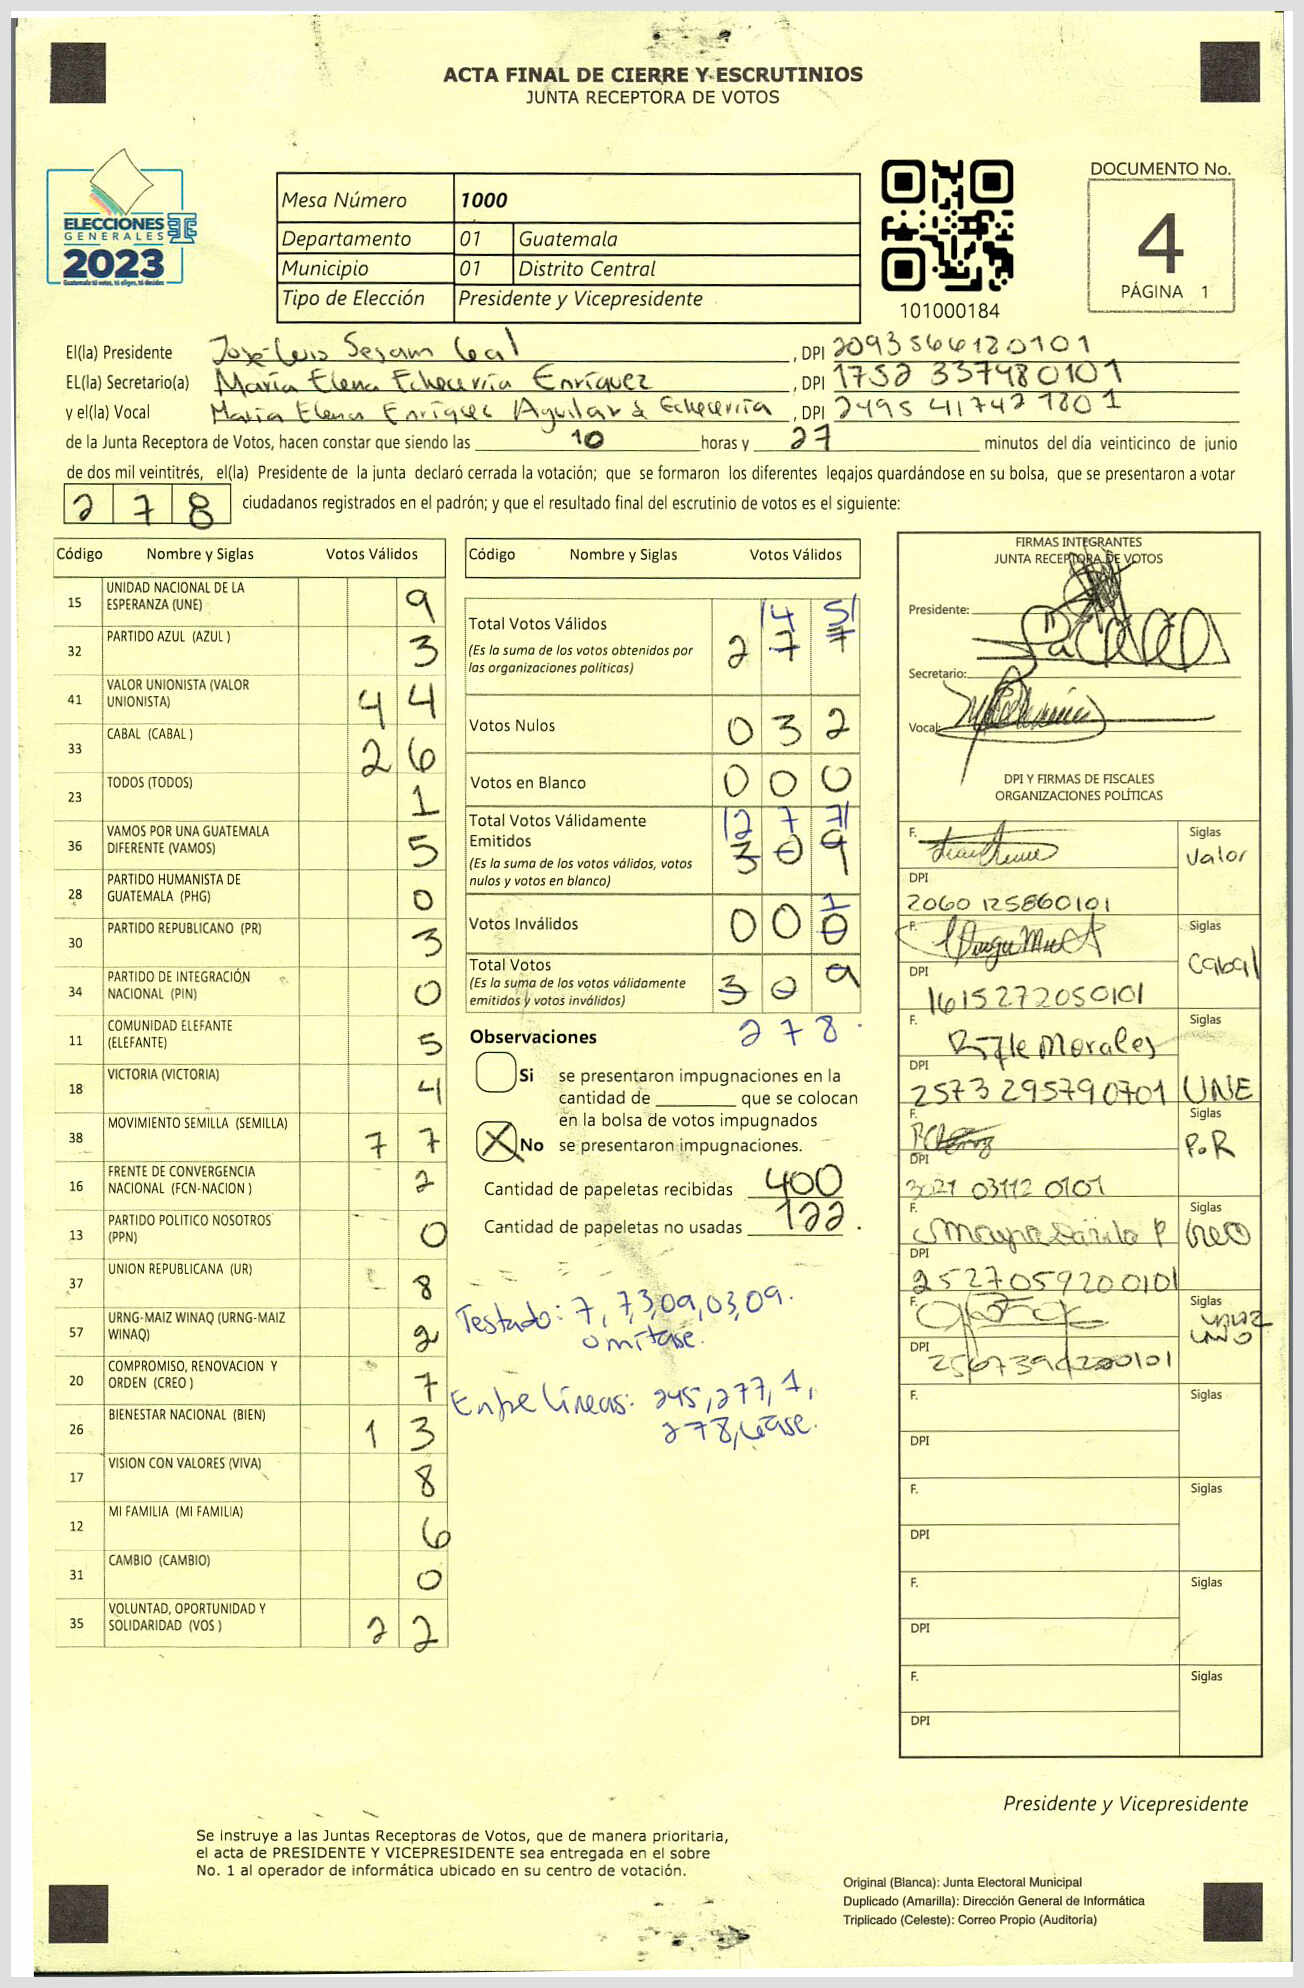 ACTA FINAL DE CIERRE Y ESCRUTINIOS
JUNTA RECEPTORA DE VOTOS
ELECCIONES
GENERALES
2023
Mesa Número 1000
Departamento 01 Guatemala
Municipio 01 Distrito Central
Tipo de Elección Presidente y Vicepresidente
101000184
DOCUMENTO No.
4
PÁGINA 1
El(la) Presidente José Luis Leal , DPI 2093566120101
EL(la) Secretario(a) María Elena Echeverría Enríquez , DPI 1752 337480101
y el(la) Vocal María Elena Enríquez Aguilar de Echeverría , DPI 2495 41742 1801
de la Junta Receptora de Votos, hacen constar que siendo las 10 horas y 27 minutos del día veinticinco de junio
de dos mil veintitrés, el(la) Presidente de la junta declaró cerrada la votación; que se formaron los diferentes legajos guardándose en su bolsa, que se presentaron a votar
278 ciudadanos registrados en el padrón; y que el resultado final del escrutinio de votos es el siguiente:
Código Nombre y Siglas Votos Válidos
15 UNIDAD NACIONAL DE LA ESPERANZA (UNE) 9
32 PARTIDO AZUL (AZUL ) 3
41 VALOR UNIONISTA (VALOR UNIONISTA) 44
33 CABAL (CABAL ) 26
23 TODOS (TODOS) 1
36 VAMOS POR UNA GUATEMALA DIFERENTE (VAMOS) 5
28 PARTIDO HUMANISTA DE GUATEMALA (PHG) 0
30 PARTIDO REPUBLICANO (PR) 3
34 PARTIDO DE INTEGRACIÓN NACIONAL (PIN) 0
11 COMUNIDAD ELEFANTE (ELEFANTE) 5
18 VICTORIA (VICTORIA) 4
38 MOVIMIENTO SEMILLA (SEMILLA) 77
16 FRENTE DE CONVERGENCIA NACIONAL (FCN-NACION ) 2
13 PARTIDO POLITICO NOSOTROS (PPN) 0
37 UNION REPUBLICANA (UR) 8
57 URNG-MAIZ WINAQ (URNG-MAIZ WINAQ) 2
20 COMPROMISO, RENOVACION Y ORDEN (CREO ) 7
26 BIENESTAR NACIONAL (BIEN) 13
17 VISION CON VALORES (VIVA) 8
12 MI FAMILIA (MI FAMILIA) 6
31 CAMBIO (CAMBIO) 0
35 VOLUNTAD, OPORTUNIDAD Y SOLIDARIDAD (VOS ) 22
Código Nombre y Siglas Votos Válidos
45
Total Votos Válidos 277
(Es la suma de los votos obtenidos por
las organizaciones políticas)
Votos Nulos 032
Votos en Blanco 000
Total Votos Válidamente 277
Emitidos 309
(Es la suma de los votos válidos, votos
nulos y votos en blanco)
1
Votos Inválidos 000
Total Votos 309
(Es la suma de los votos válidamente
emitidos y votos inválidos)
278.
Observaciones
Si se presentaron impugnaciones en la
cantidad de ________ que se colocan
en la bolsa de votos impugnados
X No se presentaron impugnaciones.
Cantidad de papeletas recibidas 400
Cantidad de papeletas no usadas 122.
Testado: 7, 7,309,0,309.
omitase.
Entre líneas: 245,277,1,
278, léase.
FIRMAS INTEGRANTES
JUNTA RECEPTORA DE VOTOS
Presidente:
Secretario:
Vocal:
DPI Y FIRMAS DE FISCALES
ORGANIZACIONES POLÍTICAS
F. Siglas
Valor
DPI
2060 125860101
F. Siglas
Cabal
DPI
1615272050101
F. Siglas
Morales
DPI
2573 295790701 UNE
F. Siglas
P.R
DPI
3021 03112 0101
F. Siglas
Creo
DPI
2527059200101
F. Siglas
DPI
F. Siglas
DPI
F. Siglas
DPI
F. Siglas
DPI
F. Siglas
DPI
Presidente y Vicepresidente
Se instruye a las Juntas Receptoras de Votos, que de manera prioritaria,
el acta de PRESIDENTE Y VICEPRESIDENTE sea entregada en el sobre
No. 1 al operador de informática ubicado en su centro de votación.
Original (Blanca): Junta Electoral Municipal
Duplicado (Amarilla): Dirección General de Informática
Triplicado (Celeste): Correo Propio (Auditoría)